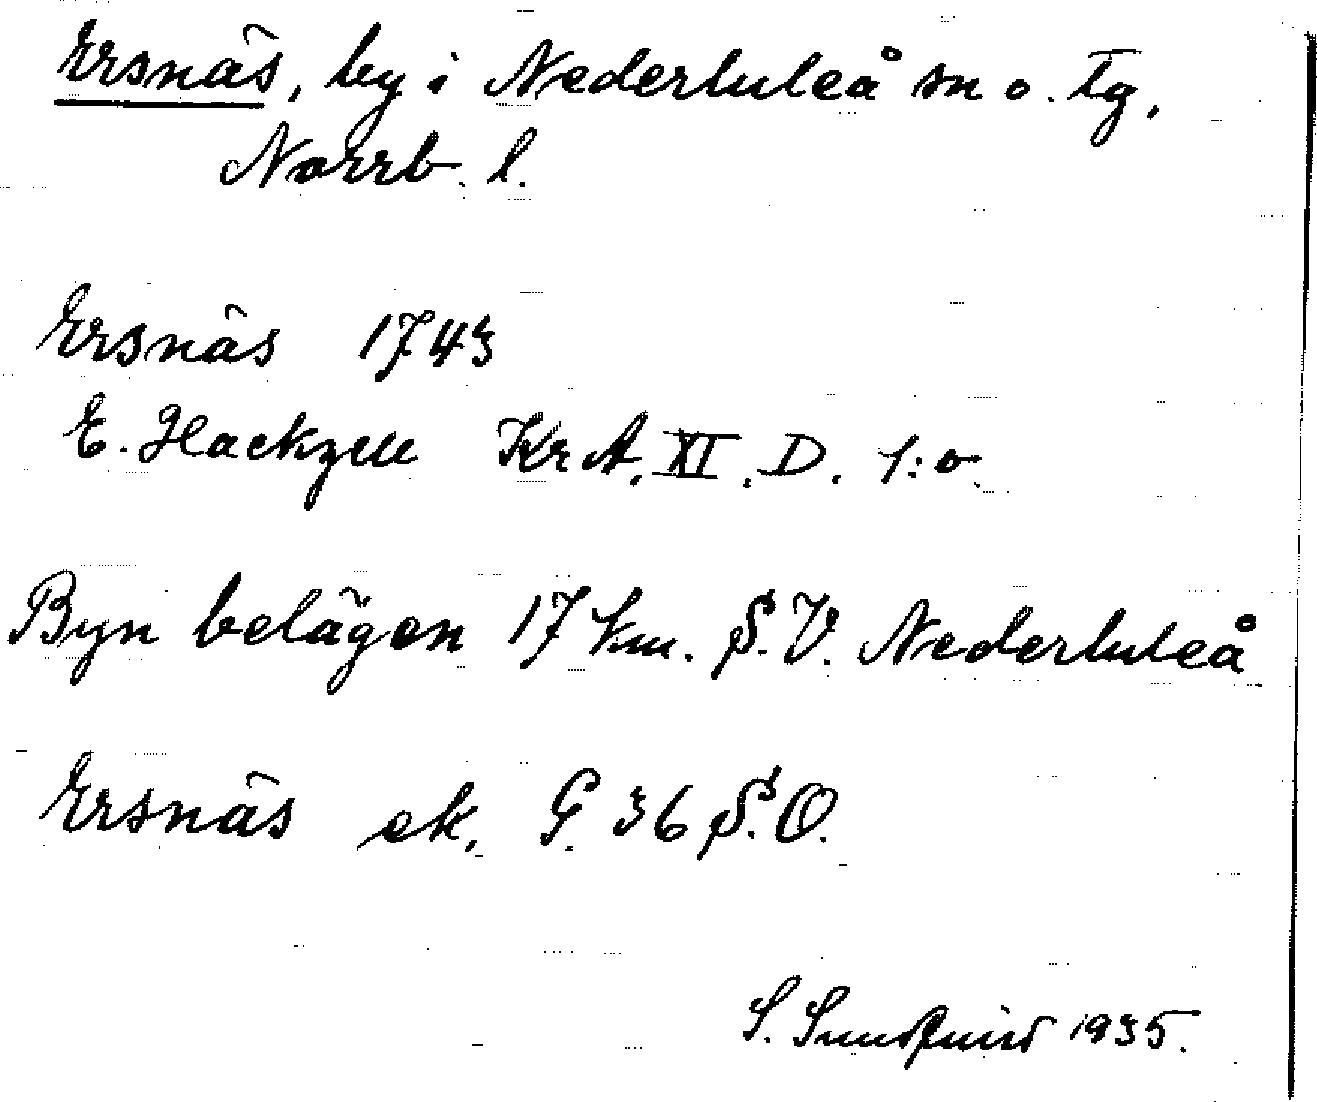 Ersnäs, by i Nederluleå sn o. tg,
Norrb. l.
Ersnäs 1743
E. Hackzell Kr A. XI. D. 1:o
Byn belägen 17 km. S.V. Nederluleå
Ersnäs ek. G. 36 S.O.
S. Sundquist 1935.